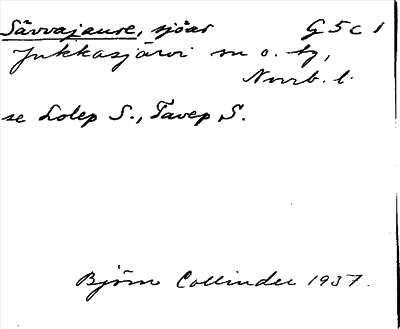 Sävvajaure, sjöar G 5 c 1
Jukkasjärvi sn o. tg,
Norrb. l.
se Lolep S., Tavep S.
Björn Collinder 1937.